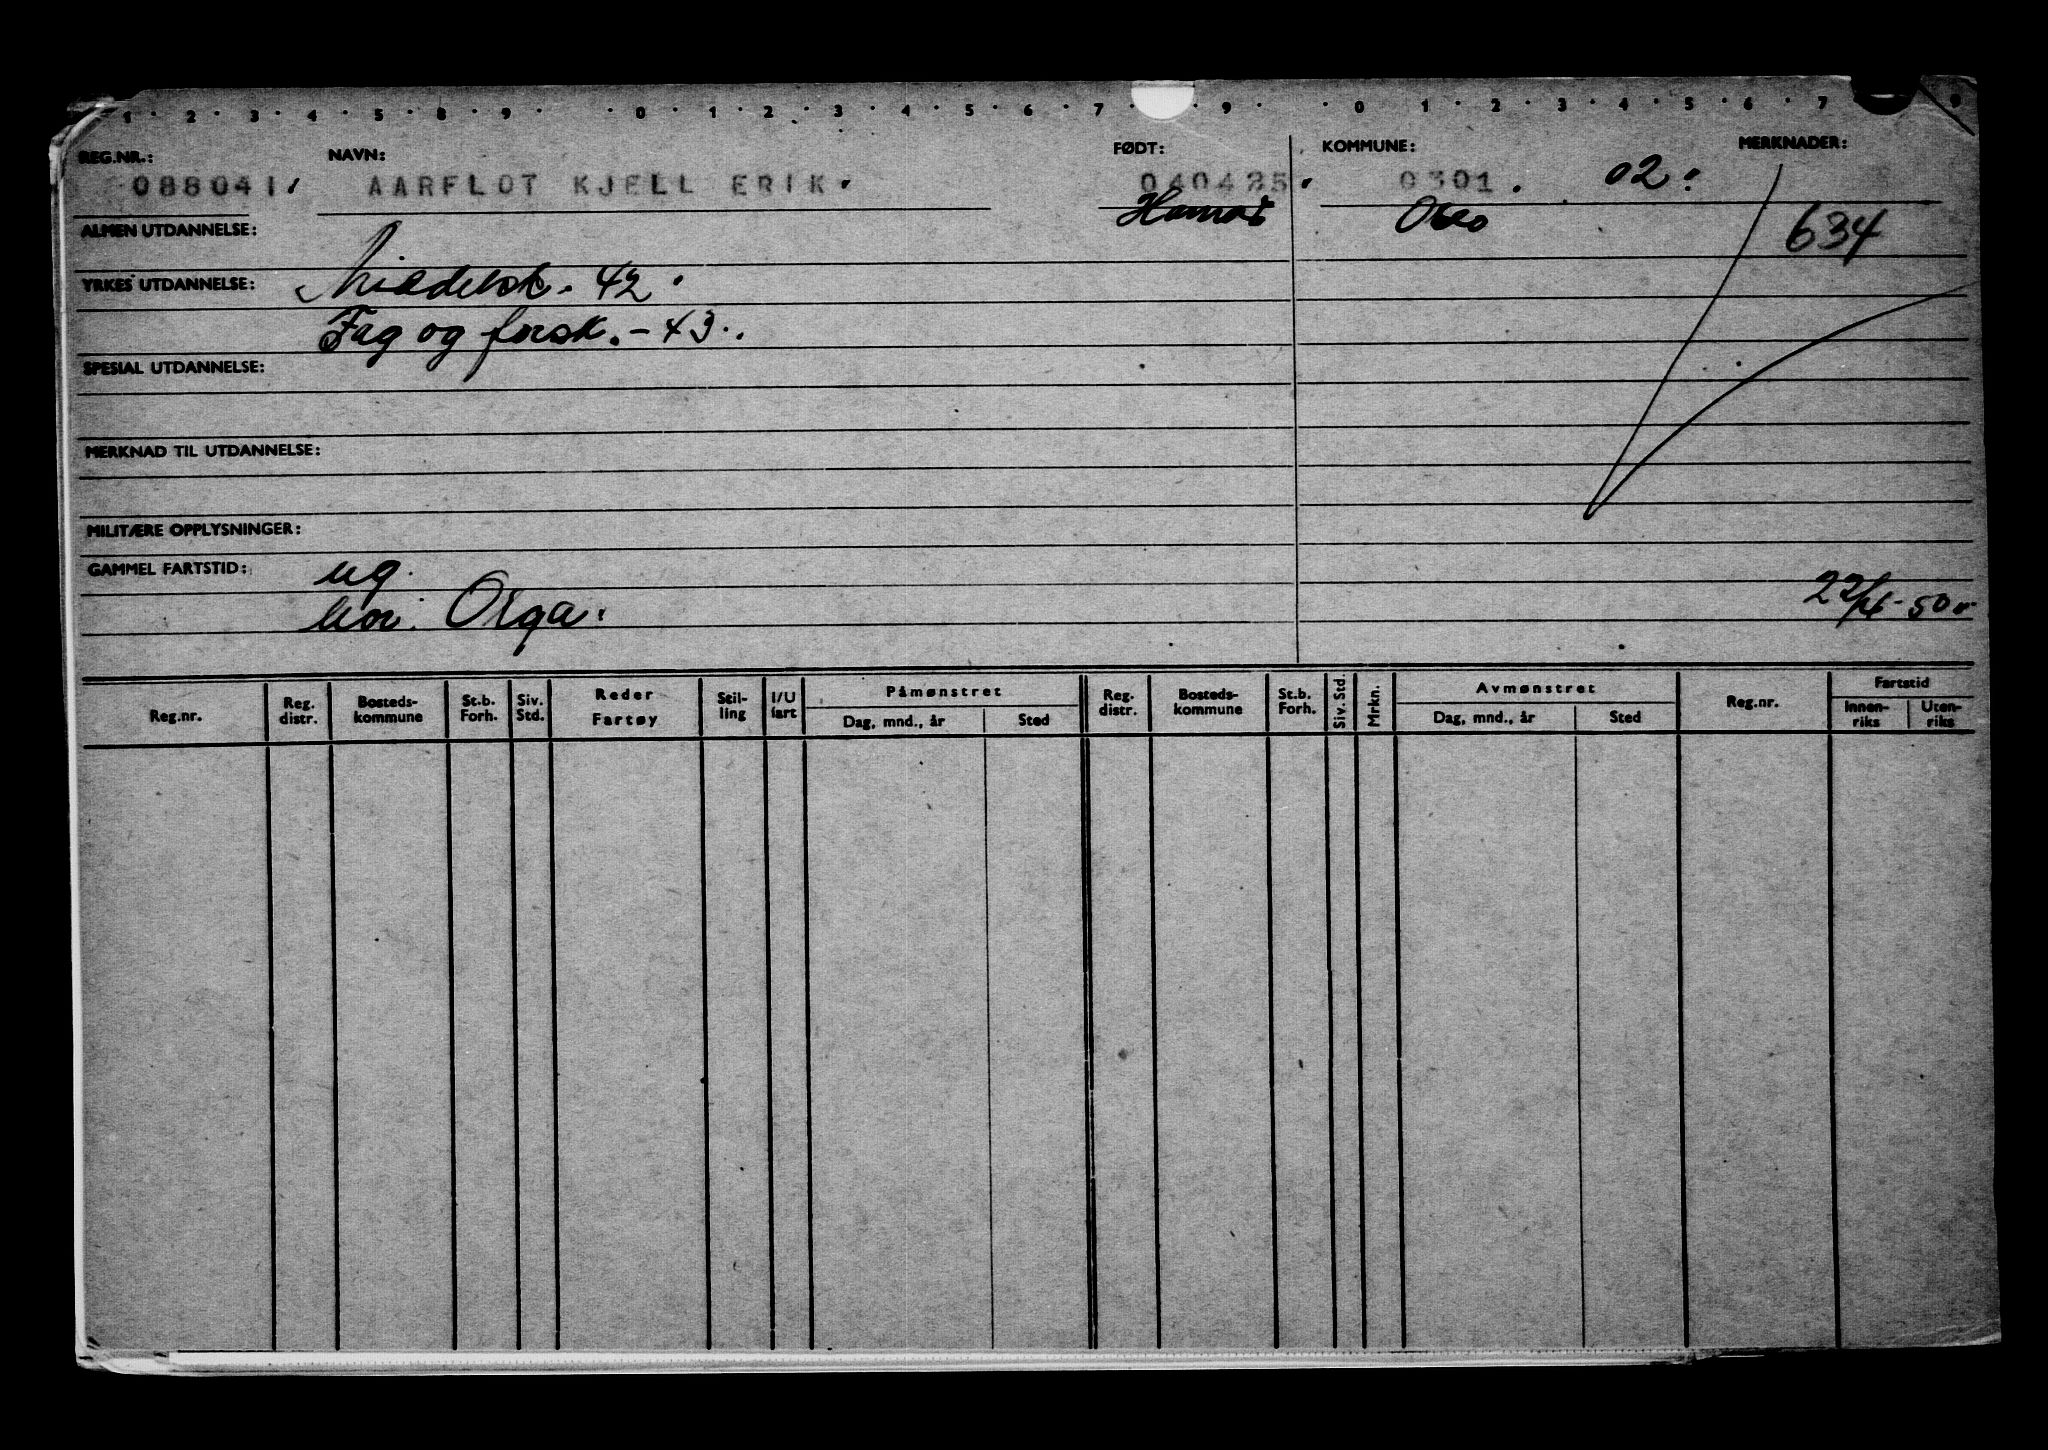 1 · 2 · 3 · 4 · 5 · 8 · 9 · 0 · 1 · 2 · 3 · 4 · 5 · 6 · 7 · 9 · 0 · 1 · 2 · 3 · 4 · 5 · 6 · 7 9
REG.NR.: NAVN: FØDT: KOMMUNE: MERKNADER:
088041. AARFLOT KJELL ERIK. 040425. 0301. 02.
Hamar Oslo 634
ALMEN UTDANNELSE:
YRKES UTDANNELSE: Middelsk. 42.
Fag og forsk. - 43.
SPESIAL UTDANNELSE:
MERKNAD TIL UTDANNELSE:
MILITÆRE OPPLYSNINGER:
GAMMEL FARTSTID: ug.
Orga. 50
Reg.nr. Reg. distr. Bosteds-kommune St.b. Forh. Siv. Std. Reder Fartøy Stil-ling I/U fart Påmønstret Dag, mnd., år Sted Reg. distr. Bosteds-kommune St.b. Forh. Siv. Std. Mrkn. Avmønstret Dag, mnd., år Sted Reg.nr. Fartstid Innen-riks Uten-riks